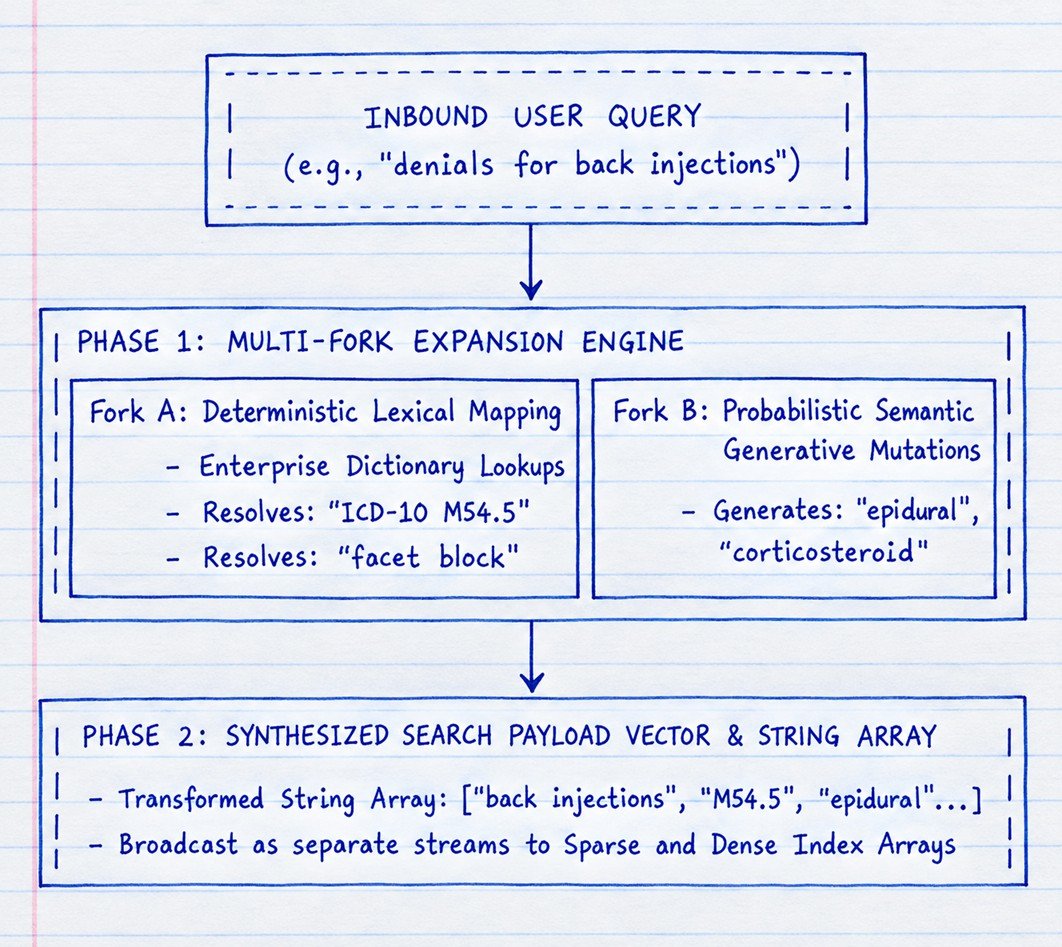 INBOUND USER QUERY
(e.g., "denials for back injections")
PHASE 1: MULTI-FORK EXPANSION ENGINE
Fork A: Deterministic Lexical Mapping
- Enterprise Dictionary Lookups
- Resolves: "ICD-10 M54.5"
- Resolves: "facet block"
Fork B: Probabilistic Semantic
Generative Mutations
- Generates: "epidural",
"corticosteroid"
PHASE 2: SYNTHESIZED SEARCH PAYLOAD VECTOR & STRING ARRAY
- Transformed String Array: ["back injections", "M54.5", "epidural"...]
- Broadcast as separate streams to Sparse and Dense Index Arrays